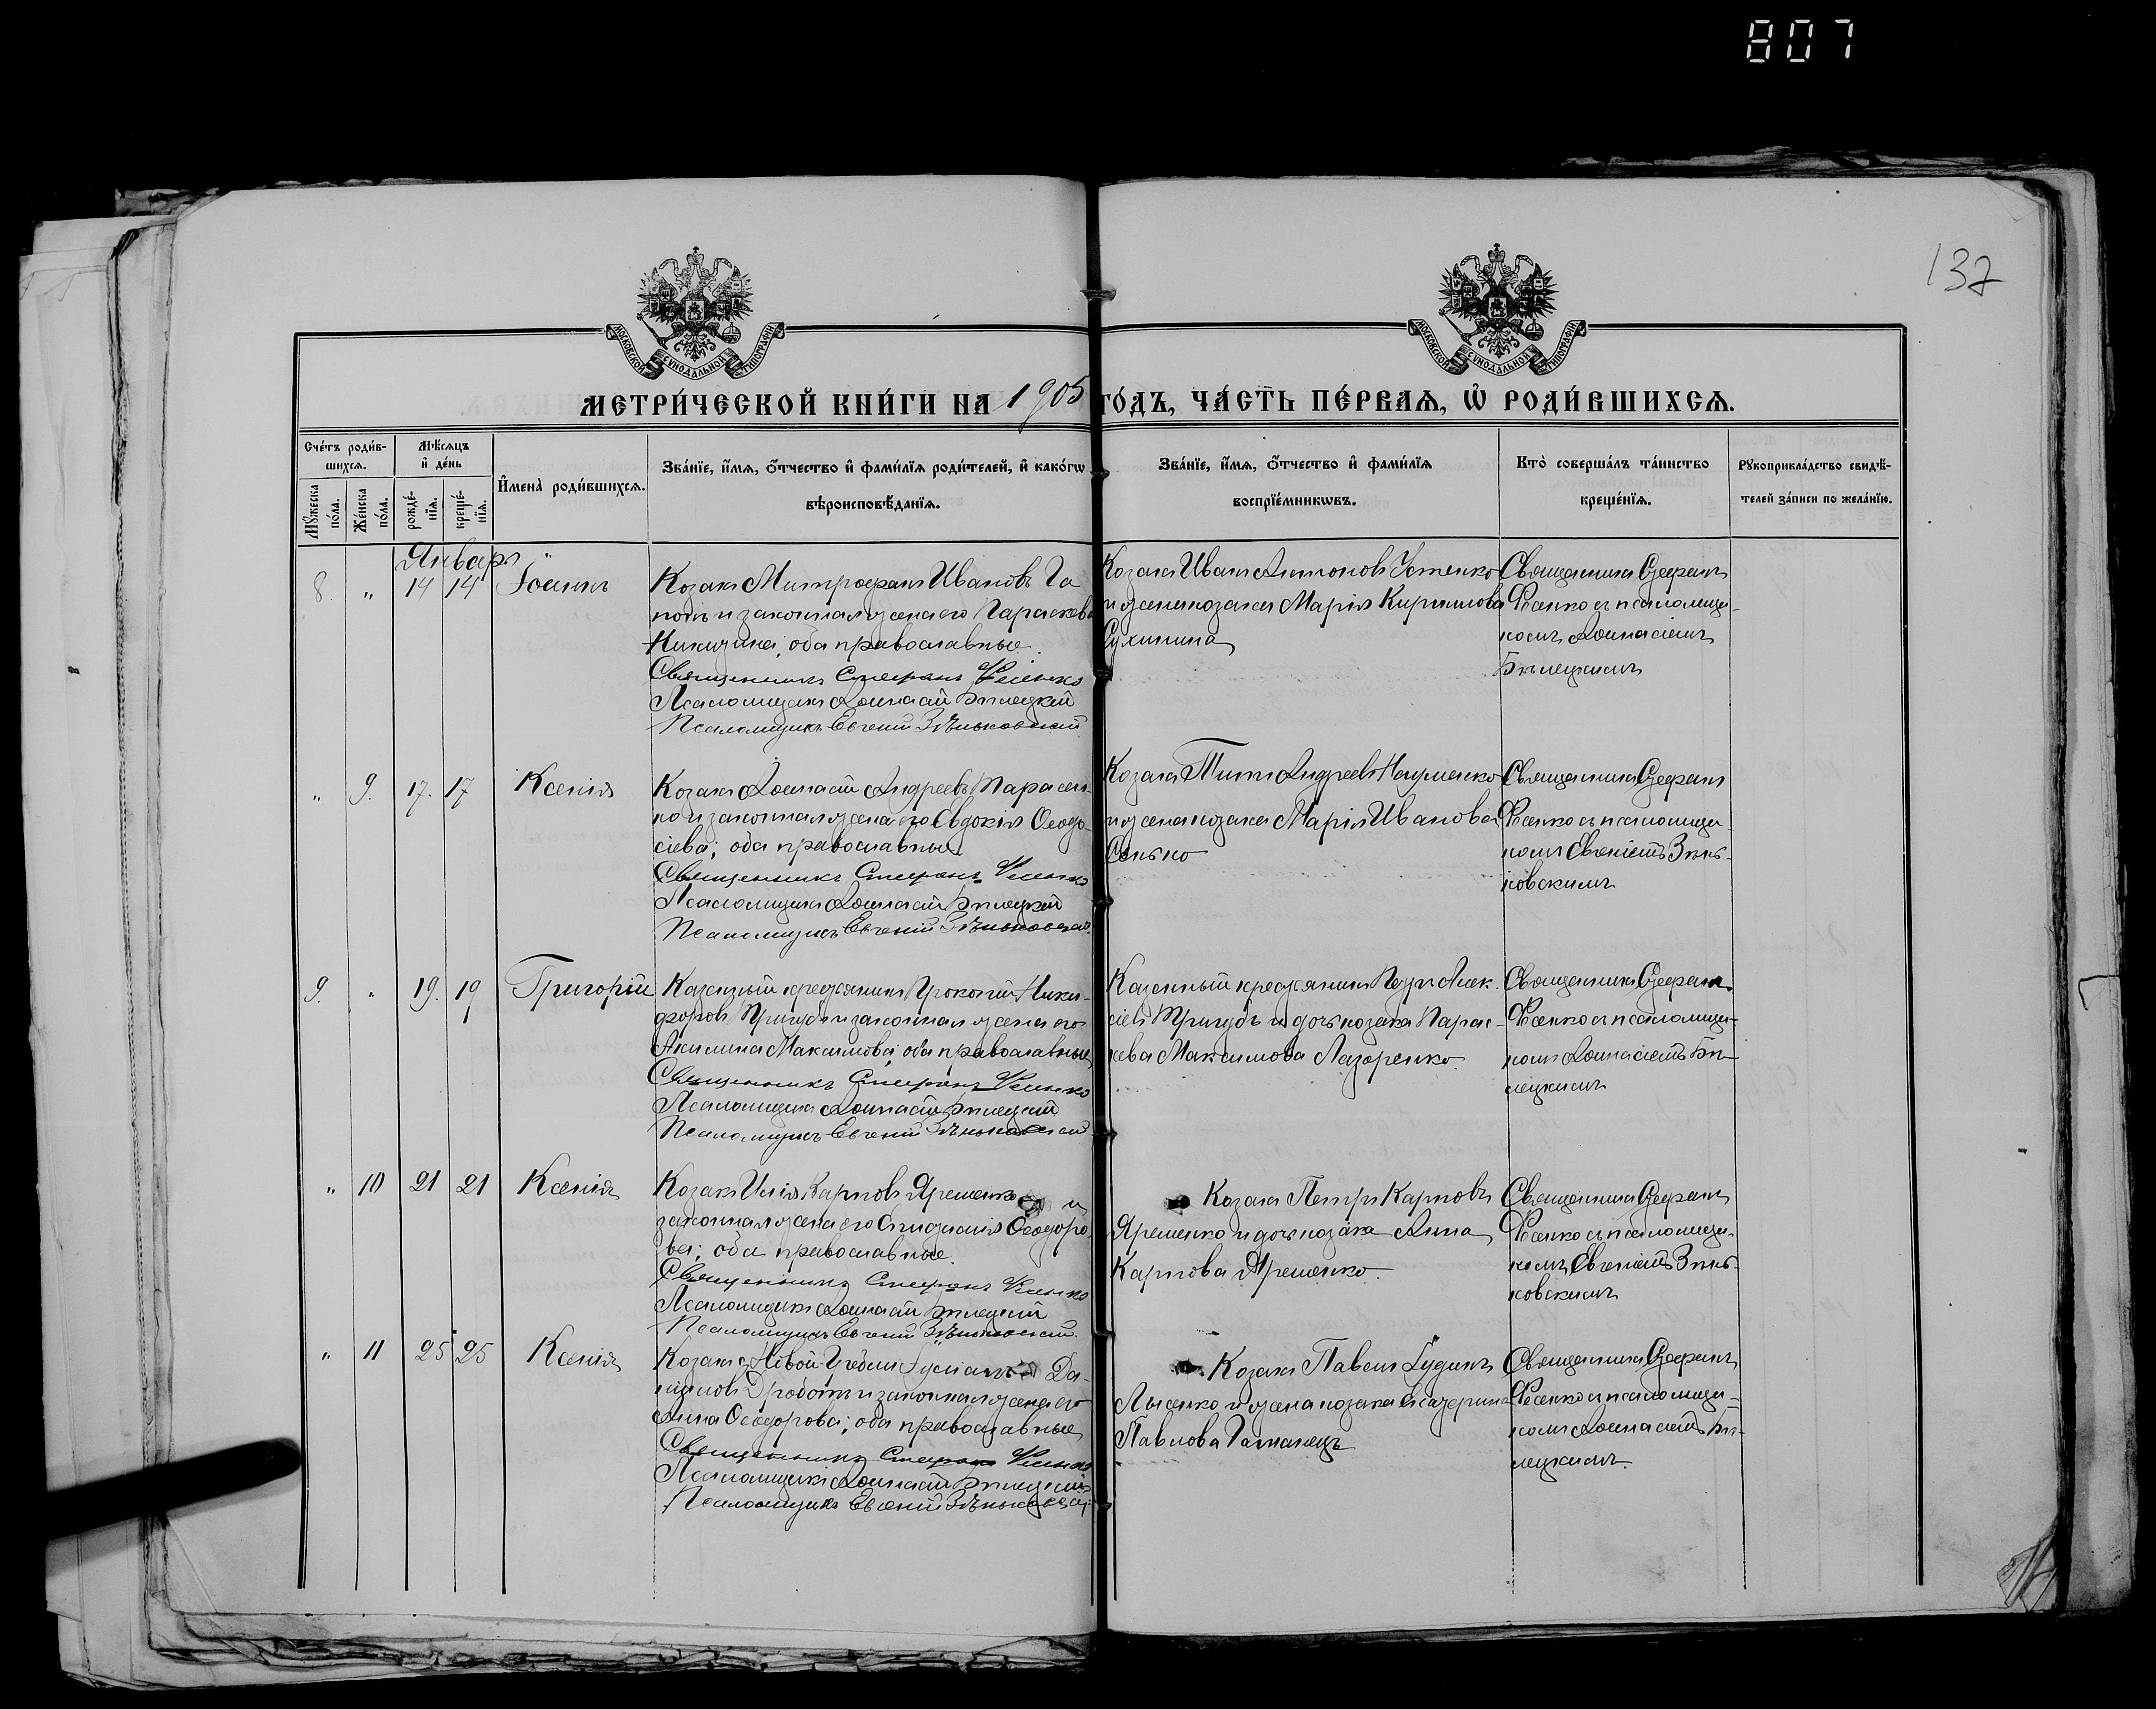 807
137
МОСКОВСКОЙ СѴНОДАЛЬНОЙ ТИПОГРАФІИ
МОСКОВСКОЙ СѴНОДАЛЬНОЙ ТИПОГРАФІИ
МЕТРИ́ЧЕСКОЙ КНИ́ГИ НА 1905 ГО́ДЪ, ЧА́СТЬ ПЕ́РВАѦ, Ѡ҆ РОДИ́ВШИХСѦ.
Сче́тъ роди́в-
шихсѧ.
Мꙋ́жеска
по́ла.
Же́нска
по́ла.
Мѣ́сѧцъ
и҆ де́нь
рожде́-
нїѧ.
креще́-
нїѧ.
И҆мена̀ роди́вшихсѧ.
Зва́нїе, и҆́мѧ, ѻ҆́тчество и҆ фами́лїѧ роди́телей, и҆ како́гѡ
вѣроисповѣ́данїѧ.
Зва́нїе, и҆́мѧ, ѻ҆́тчество и҆ фами́лїѧ
воспрїе́мникѡвъ.
Кто̀ соверша́лъ та́инство
креще́нїѧ.
Рꙋкоприкла́дство свидѣ́-
телей за́писи по жела́нїю.
Январь
8. " 14 14 Іоаннъ
Козакъ Митрофанъ Ивановъ Га
понъ и законная жена его Параскева
Никитина; оба православные.
Священникъ Стефанъ Ѳесенко
Псаломщикъ Аѳанасій Бѣлецкій
Псаломщикъ Евгеній Зѣньковскій
Козакъ Иванъ Антоновъ Устенко
и жена козака Марія Кириллова
Сухинина
Священникъ Стефанъ
Ѳесенко съ псаломщи-
комъ Аѳанасіемъ
Бѣлецкимъ
" 9. 17. 17 Ксенія
Козакъ Аѳанасій Андреевъ Тарасен-
ко и законная жена его Евдокія Ѳеодо-
сіева; оба православные
Священникъ Стефанъ Ѳесенко
Псаломщикъ Аѳанасій Бѣлецкій
Псаломщикъ Евгеній Зѣньковскій
Козакъ Титъ Андреевъ Науменко
и жена козака Марія Иванова
Сенько
Священникъ Стефанъ
Ѳесенко съ псаломщи-
комъ Евгеніемъ Зѣнь-
ковскимъ
9. " 19. 19 Григорій
Казенный крестьянинъ Прокопій Ники-
форовъ Тригубъ и законная жена его
Акилина Максимова; оба православные
Священникъ Стефанъ Ѳесенко
Псаломщикъ Аѳанасій Бѣлецкій
Псаломщикъ Евгеній Зѣньковскій
Казенный крестьянинъ Петръ Алек-
сіевъ Тригубъ и дочь козака Парас-
кева Максимова Лазоренко.
Священникъ Стефанъ
Ѳесенко съ псаломщи-
комъ Аѳанасіемъ Бѣ-
лецкимъ
" 10 21 21 Ксенія
Козакъ Илія Карповъ Яременко и
законная жена его Ѳеодоро-
ва; оба православные.
Священникъ Стефанъ Ѳесенко
Псаломщикъ Аѳанасій Бѣлецкій
Псаломщикъ Евгеній Зѣньковскій.
Козакъ Петръ Карповъ
Яременко и дочь козака Анна
Карпова Яременко.
Священникъ Стефанъ
Ѳесенко съ псаломщи-
комъ Евгеніемъ Зѣнь-
ковскимъ
" 11 25 25 Ксенія
Козакъ Да-
ниловъ и законная жена его
Анна Ѳеодорова; оба православные
Священникъ Стефанъ Ѳесенко
Псаломщикъ Аѳанасій Бѣлецкій
Псаломщикъ Евгеній Зѣньковскій
Козакъ Павелъ
Лысенко и жена козака Екатерина
Павлова
Священникъ Стефанъ
Ѳесенко съ псаломщи-
комъ Аѳанасіемъ Бѣ-
лецкимъ.